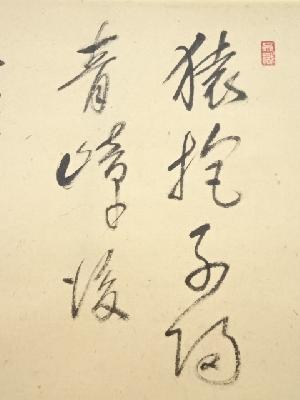 猿抱子歸
青嶂後